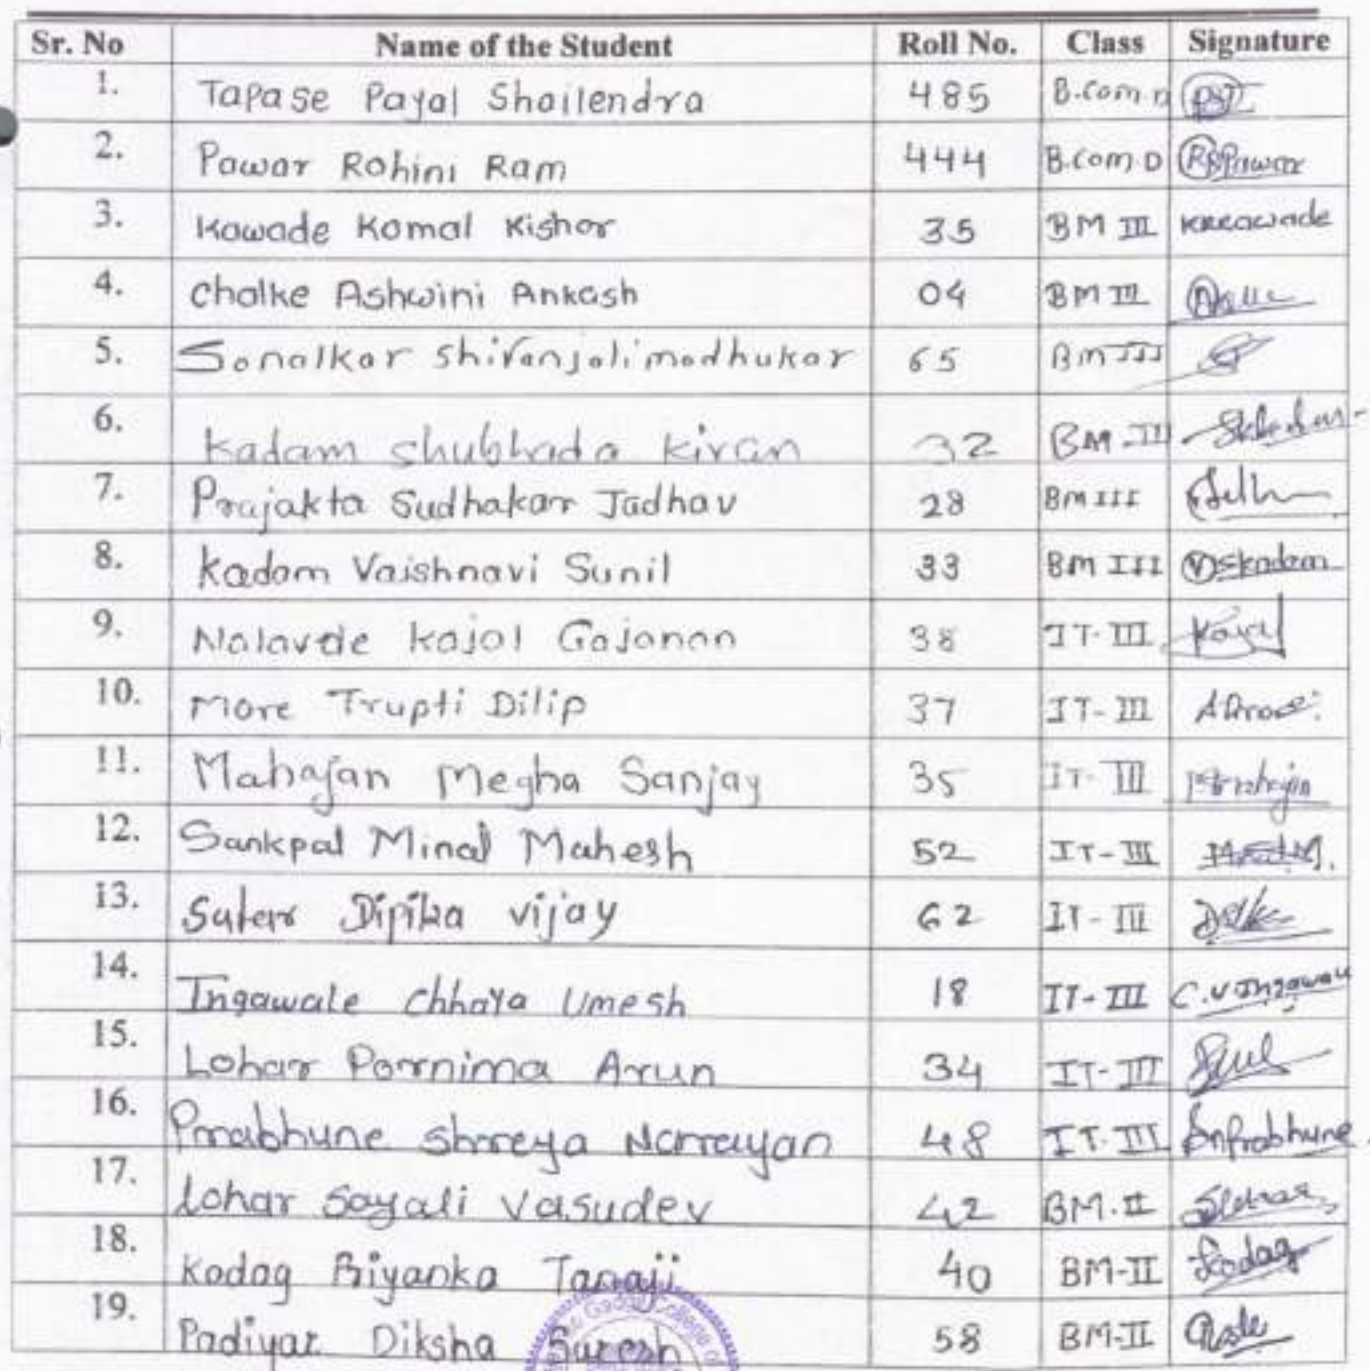 Sr. No Name of the Student Roll No. Class Signature
1. Tapase Payal Shailendra 485 B.com.D
2. Pawar Rohini Ram 444 B.com D RRPawar
3. Kawade Komal Kishor 35 BM III KKKawade
4. Chalke Ashwini Ankush 04 BM III
5. Sonalkar Shivanjali madhukar 65 Bm III
6. Kadam Shubhada Kiran 32 BM-III
7. Prajakta Sudhakar Jadhav 28 BM III
8. Kadam Vaishnavi Sunil 33 BM III VSKadam
9. Nalavde Kajal Gajanan 38 IT-III Kajal
10. More Trupti Dilip 37 IT-III
11. Mahajan Megha Sanjay 35 IT-III
12. Sankpal Minal Mahesh 52 IT-III
13. Sutar Dipika vijay 62 IT-III
14. Ingawale Chhaya Umesh 18 IT-III C.U Ingawale
15. Lohar Pornima Arun 34 IT-III
16. Prabhune Shreya Narrayan 48 IT-III SnPrabhune
17. Lohar Sayali Vasudev 42 BM.II
18. Kodag Priyanka Tanaji 40 BM-II Kodag
19. Padiyar Diksha Suresh 58 BM-II
College of